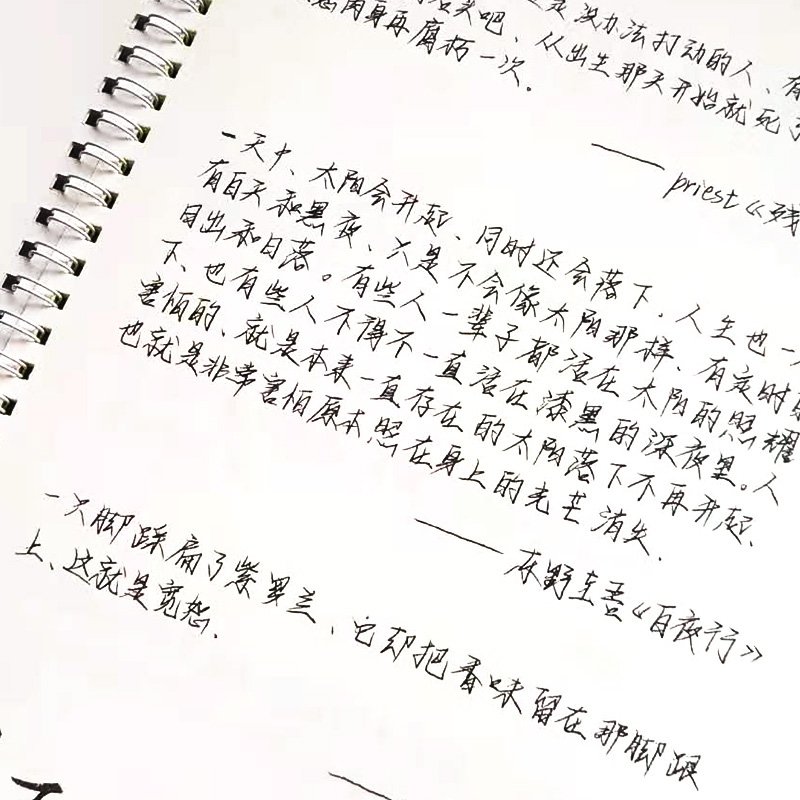 没办法打动的人、有
肉身再腐朽一次。
吧、从出生那天开始就死了
——priest《残
一天中、太阳会升起、同时还会落下. 人生也一
有白天和黑夜、只是不会像太阳那样、有定时的
日出和日落。有些人一辈子都活在太阳的照耀
下、也有些人不得不一直活在漆黑的深夜里。人
害怕的、就是本来一直存在的太阳落下不再升起、
也就是非常害怕原本照在身上的光芒消失.
——东野圭吾《白夜行》
一只脚踩扁了紫罗兰、它却把香味留在那脚跟
上、这就是宽恕.